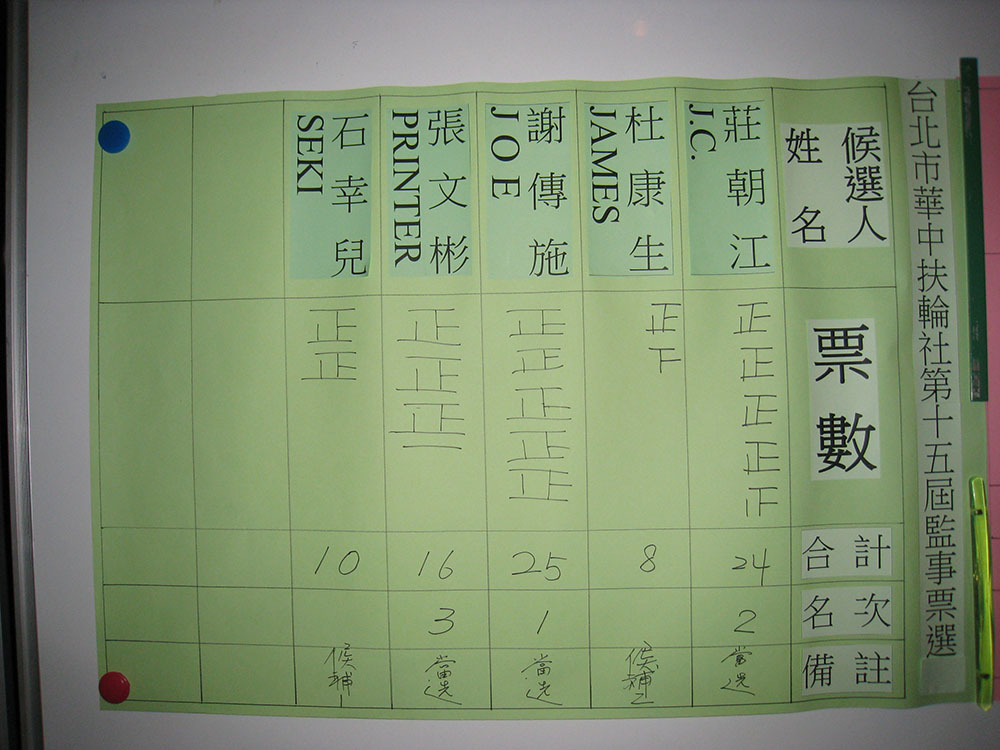 台北市華中扶輪社第十五屆監事票選
候選人
姓名
票數
合計
名次
備註
莊朝江
J.C.
正正正正正
24
2
當選
杜康生
JAMES
正下
8
候補2
謝傳施
JOE
正正正正正
25
1
當選
張文彬
PRINTER
正正正一
16
3
當選
石幸兒
SEKI
正正
10
候補1